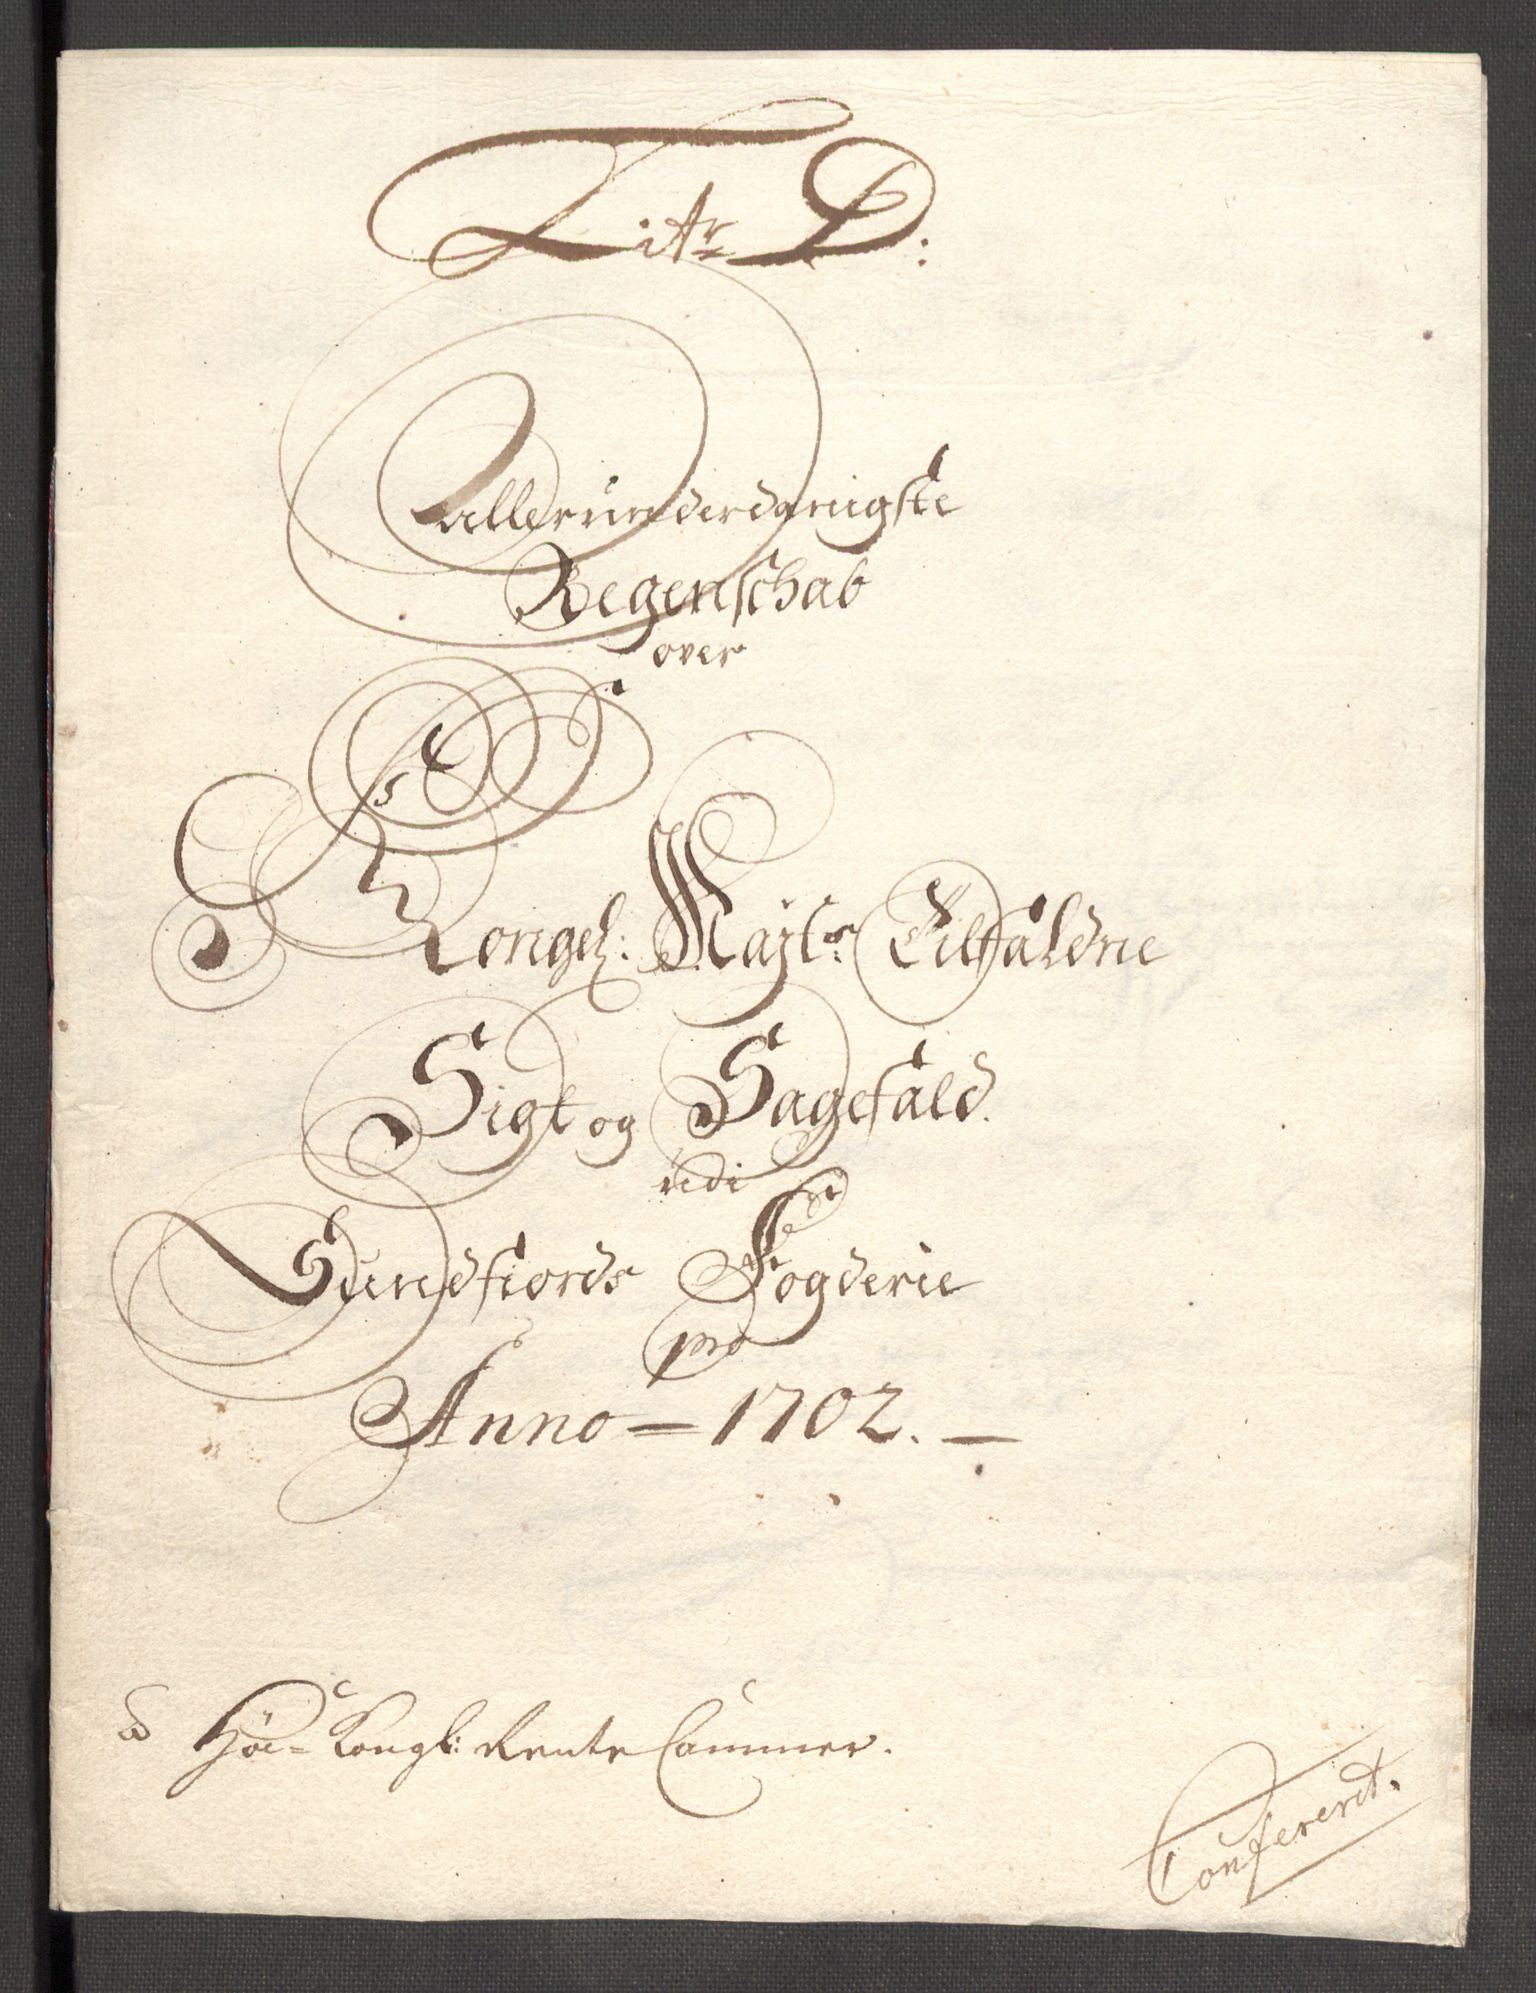 Litr D:
Allerunderdanigste
Regenschab
over
Kongel: Mayts: Tilfaldne
Sigt og Sagefald.
udi
Sundfiords Fogderie
pro
Anno – 1702. –
Höi- Kongl: Rente Cammer.
Confererit.